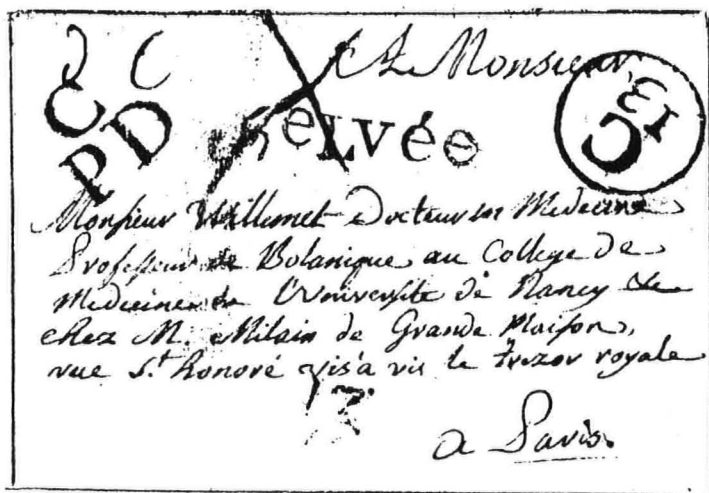 A Monsieur
C
PD
RELVéE
13
C
Monsieur Willemet Docteur en Medecine
Professeur de Botanique au College de
Medicine de l'Université de Nancy &c
chez M. Milain de Grande Maison,
rue St. honoré vis a vis le trezor royale
a Paris.